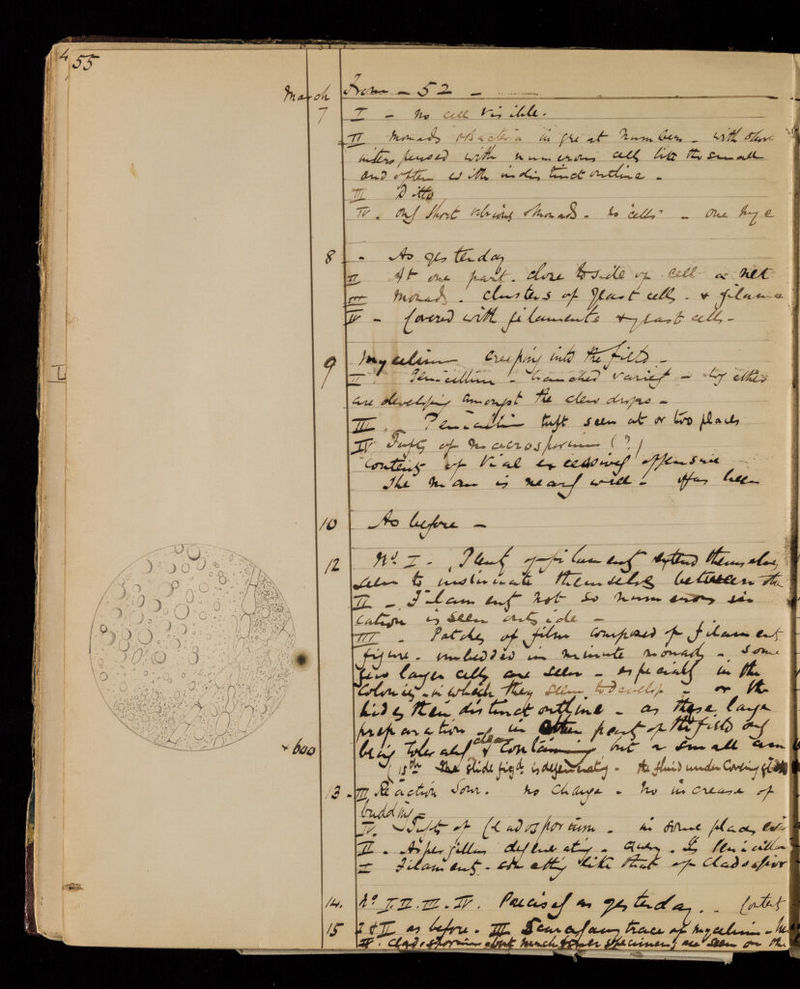 55
March From - 52 -
7 I - no cell visible.
II monads & bacteria in great numbers - with other
interspersed with numerous cells like the small
and often with indistinct outline -
III Ditto
IV. only short vibriones & monads - no cells - one
8 - As yesterday
II At one part. close to side of cell a net
III monads. clusters of yeast cells. &
IV - Covered with filaments & yeast cells -
9 Mycelium creeping into the field -
I
II. Penicillium - branched variety -
are developing amongst the dew drops -
III. Penicillium tuft seen at or two places
IV Tufts of macrosporium (?)
Contents of Vial excessively offensive
The man is nearly well - Has been
10 As before -
12 No. I - Plenty of filaments extend themselves
seem to insinuate themselves between the
II - Filaments not so numerous
is seen outside -
III - Patches of film composed of filaments
figure. imbedded in minute monads - Some
few larger cells are seen - especially in the
Colonies - in which they seem to develop - or the
hides their distinct outline - as these large
preparation - in other part of the field only
being tolerably clear & containing but a small
× 600
(15th The slide figd is degenerating - the fluid under Covering glass
13 - III Reaction Sour. no change - no increase of
budding -
IV. Tufts of Cladosporium - in some places
II - Aspergillus degenerating - query. Is
I Filaments - like that of
14. No I. II. III. IV. Precisely as yesterday..
15 I & II as before. III Scarcely any trace of mycelium -
IV. Cladosporium but much finer specimens are seen on the